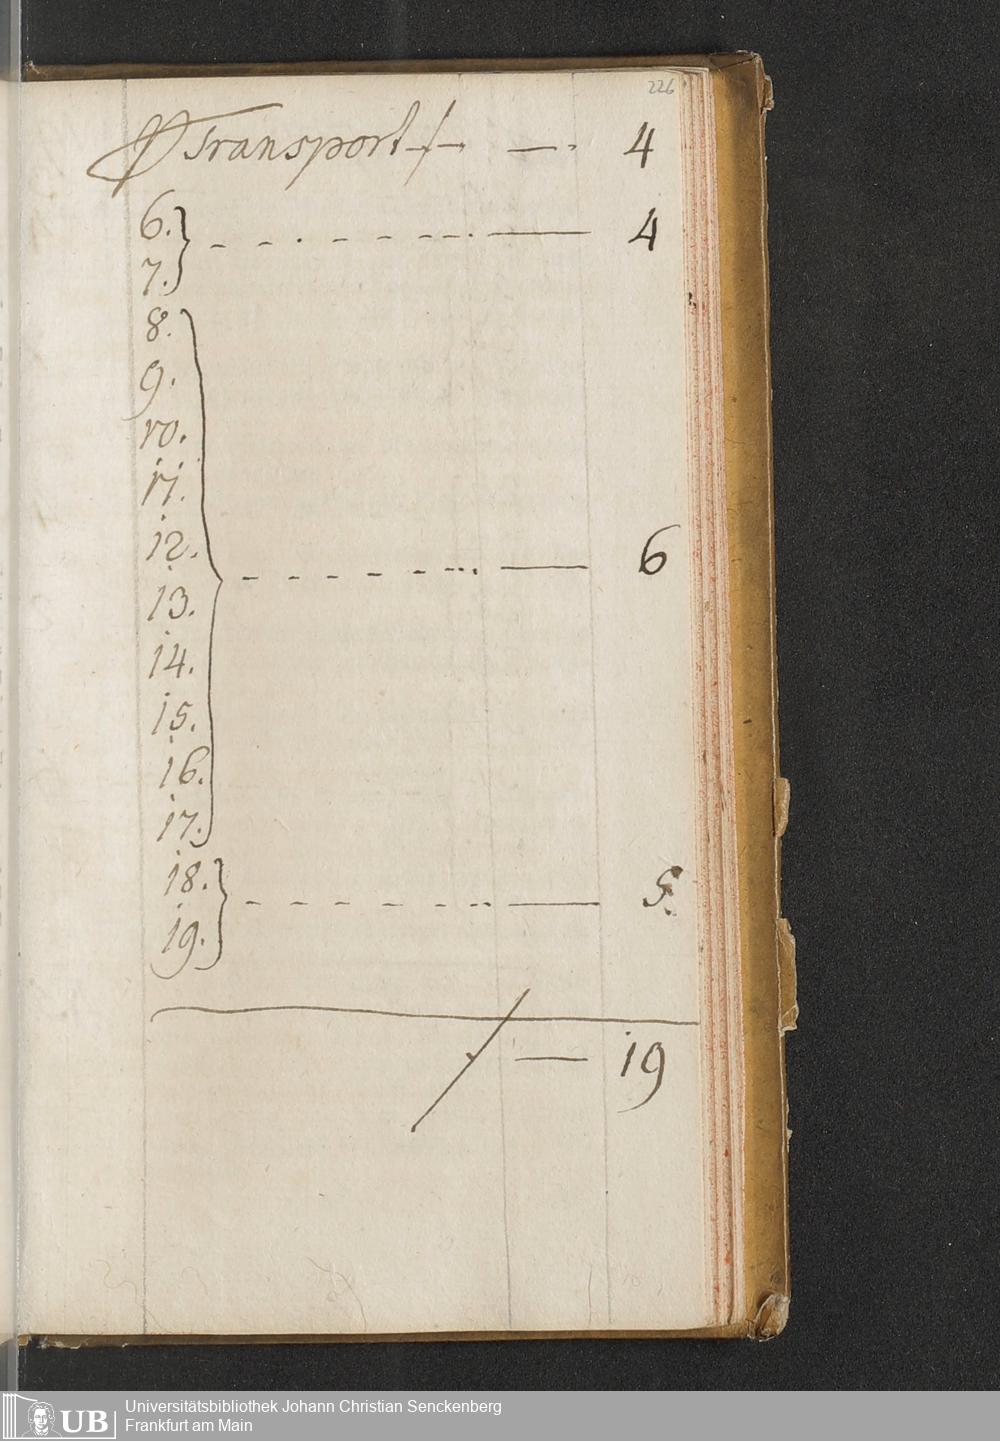 226
Transport — 4
6.
7. — 4
8.
9.
10.
11.
12.
13. — 6
14.
15.
16.
17.
18.
19. — 5.
— 19
UB
Universitätsbibliothek Johann Christian Senckenberg
Frankfurt am Main